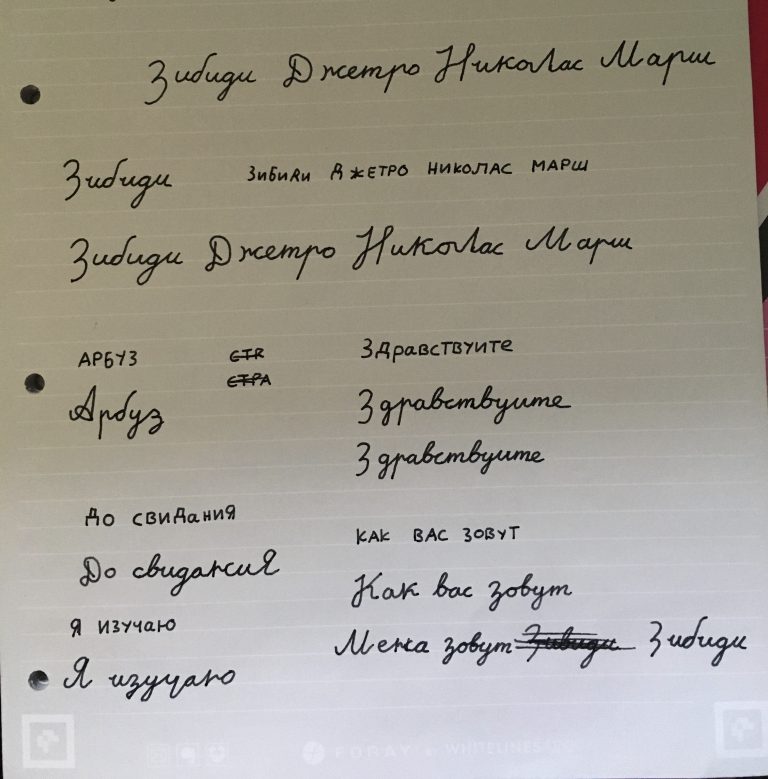 Зибиди Джетро Николас Марш
Зибиди ЗИБИДИ ДЖЕТРО НИКОЛАС МАРШ
Зибиди Джетро Николас Марш
АРБУЗ СТР ЗДРАВСТВУИТЕ
СТРА
Арбуз Здравствуите
Здравствуите
ДО СВИДАНИЯ
КАК ВАС ЗОВУТ
До свидания
Как вас зовут
Я ИЗУЧАЮ
Мена зовут Зибиди
Я изучаю
FORAY WHITELINES